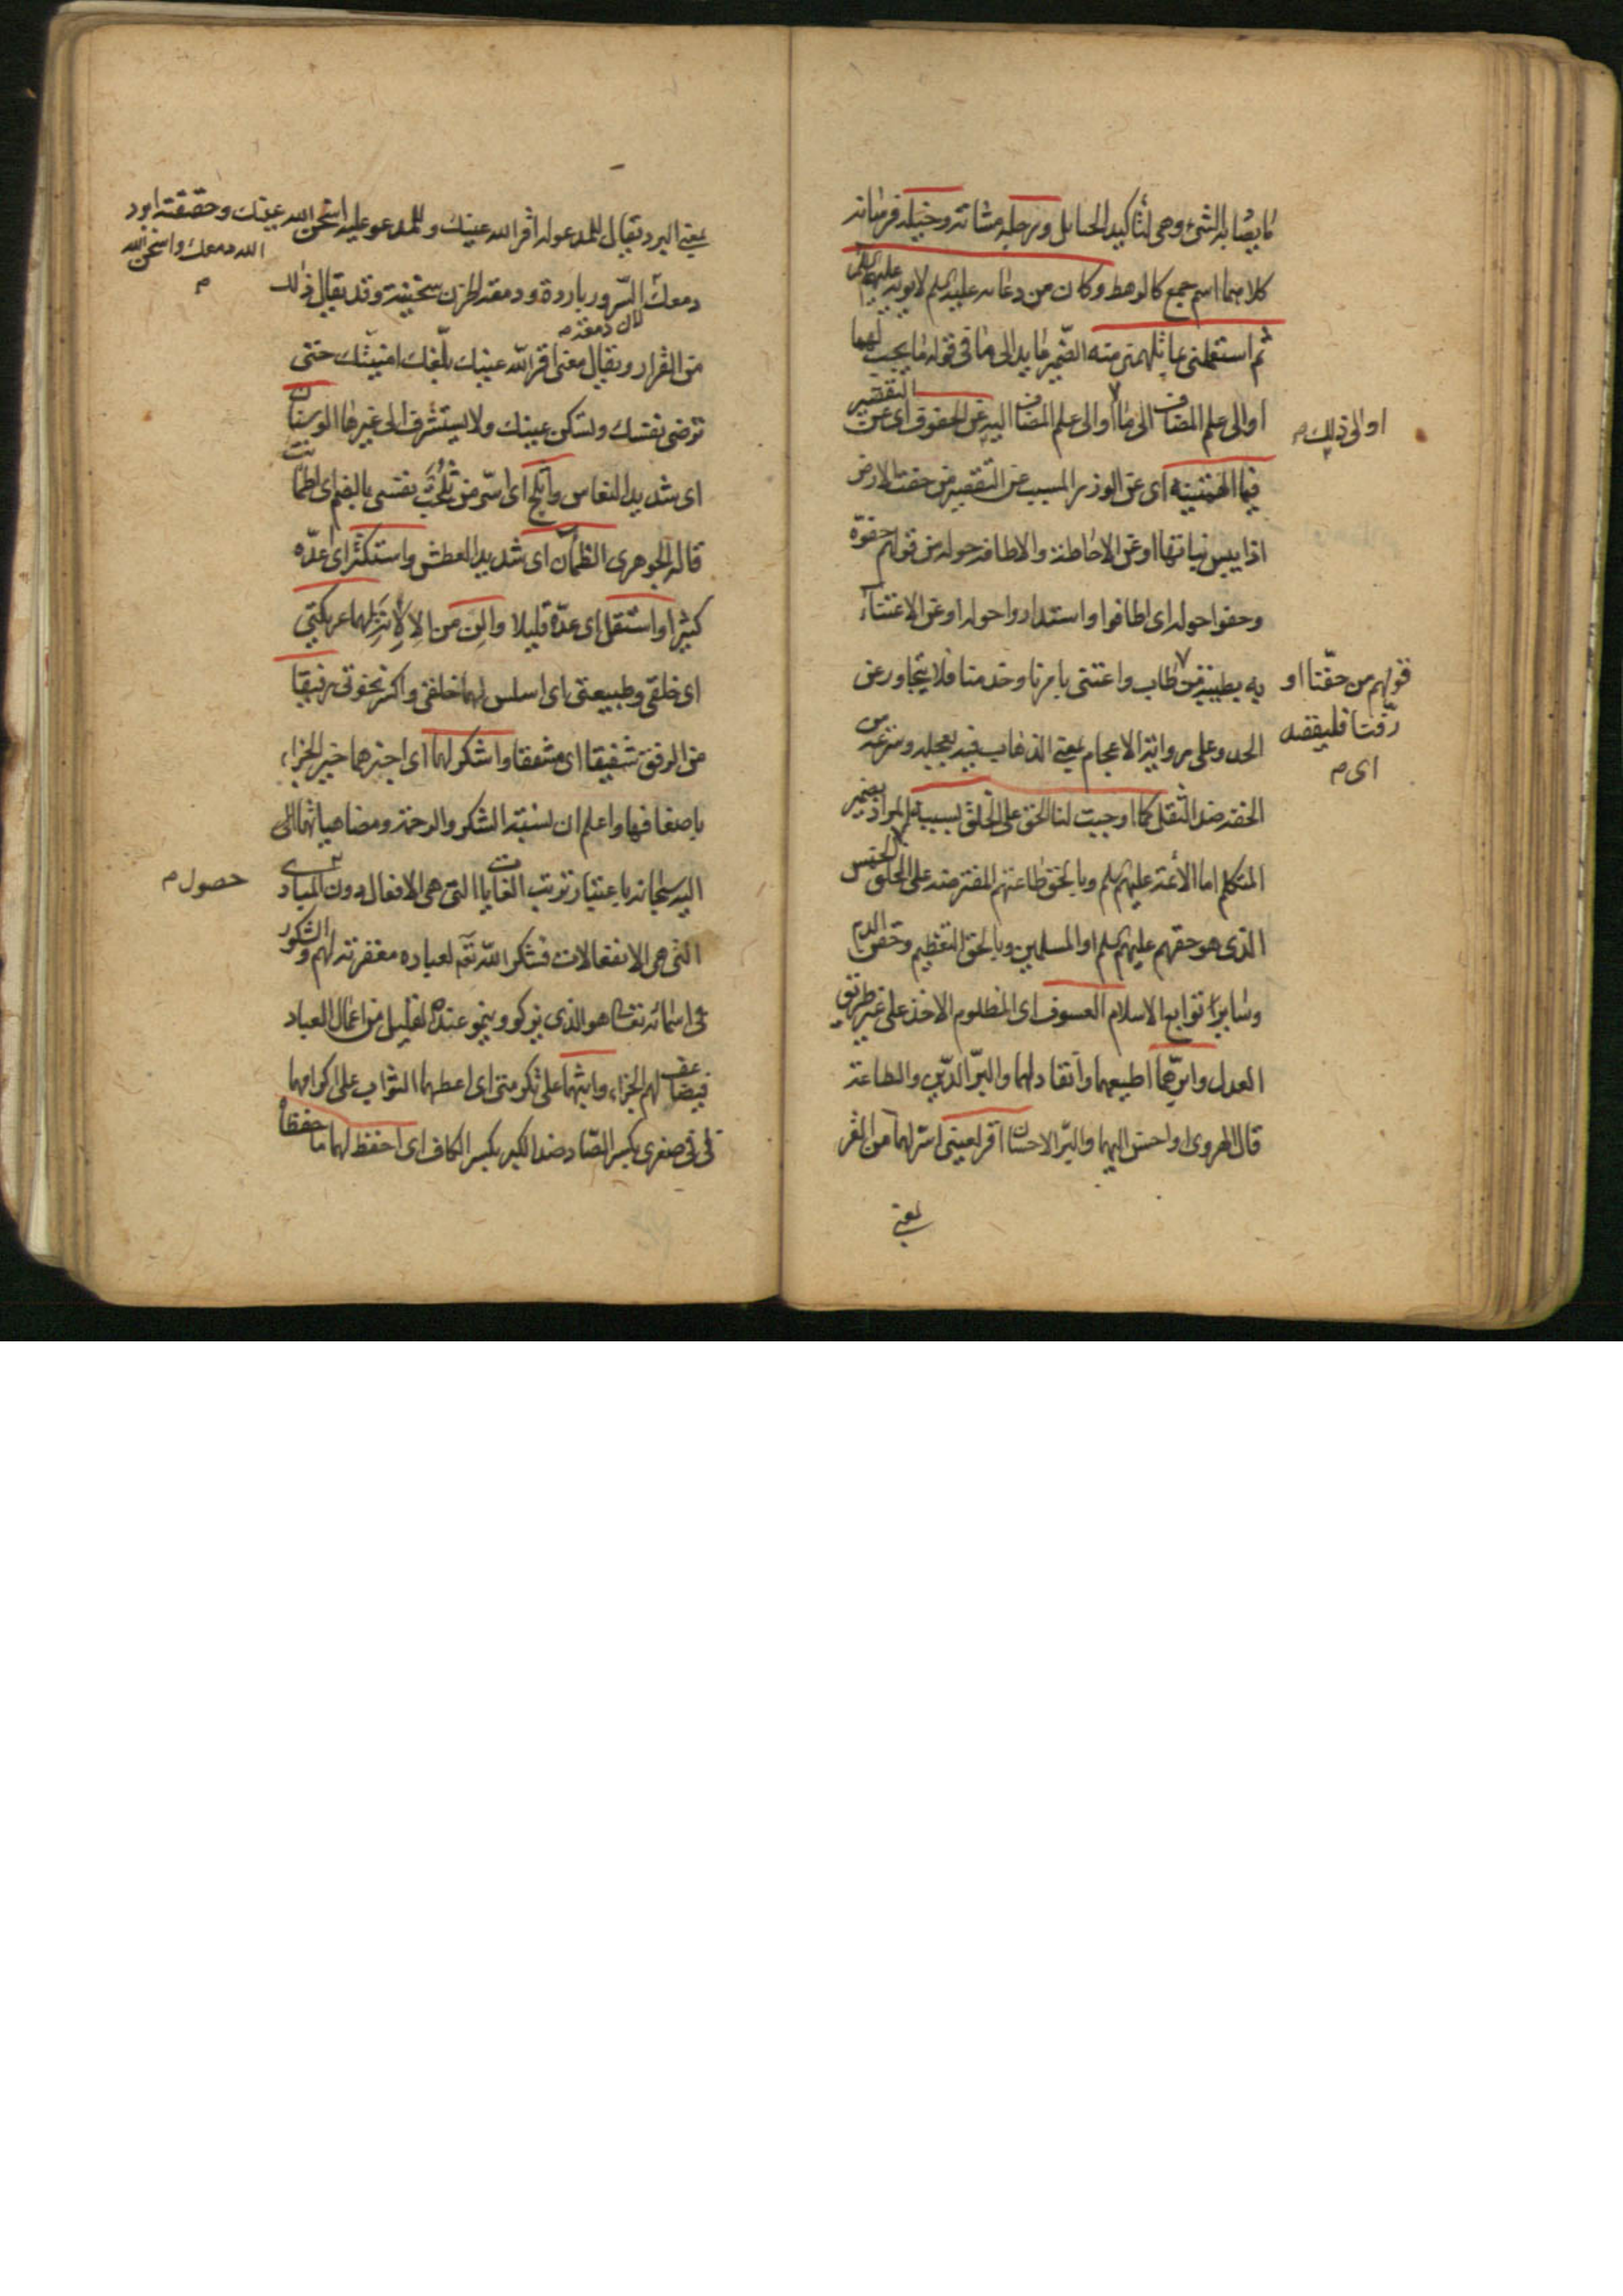 ما يصاد به الشئ وهي لتاكيد الحبايل ورجله مشاته وخيله فرسانه
كلاهما اسم جمع كالرهط وكان من دعائه عليه السلم لابويه عليهم السلم
ثم استعملني بما تلهمني منه الضمير عايد الى ما في قوله ما يجب لهما
او الى علم المضاف الى ما او الى علم المضاف اليه عن الحقوق اى عن التقصير
او الى ذلك م
فيما الهمتنيه اى عن الوزر المسبب عن التقصير من حفت الارض
اذا يبس نباتها او عن الاحاطة والاطافة حوله من قولهم حفوة
وحفوا حوله اى اطافوا واستداروا حوله او عن الاعتناء
به بطيبة من طاب واعتنى بامرنا وخدمتنا فلا يتجاوز عن
قولهم من حفنا او
رفنا فليقصد
اى م
الحد وعلى رواية الاعجام بمعنى الذهاب فيه بعجلة وسرعة من
الخفة ضد الثقل كما اوجبت لنا الحق على الخلق بسببه المراد بضمير
المتكلم اما الائمة عليهم السلم وبالحق طاعتهم المفترضة على الخلق الخمس
الذى هو حقهم عليهم السلم او المسلمين وبالحق التعظيم وحقن الدم
وساير توابع الاسلام العسوف اى المظلوم الاخذ على غير طريق
العدل وابرهما اطيعهما وانقاد لهما والبر الدين والطاعة
قال الهروى او احسن اليهما والبر الاحسان اقر لعينى اسر لهما من القر
بمعنى
بمعنى البرد يقال للمدعو له اقر الله عينك وللمدعو عليه اسخن الله عينك وحقيقته ابرد
الله دمعك واسخن الله
م
دمعك السرور باردة ودمعة الحزن سخينة وقد يقال ذلك
لان دمعة م
من القرار ويقال معنى اقر الله عينك بلغك امنيتك حتى
ترضى نفسك وتسكن عينك ولا يستشرف الى غيرها الوسنان
اى شديد النعاس واثلج اى اسر من ثلجت نفسى بالضم اى اطمانت
قاله الجوهرى الظمآن اى شديد العطش واستكثر اى عده
كثيرا واستقل اى عده قليلا والن من الالانة لهما عريكتى
اى خلقى وطبيعتى اى اسلس لهما خلقى واكسر نخوتى رفيقا
من الرفق شفيقا اى مشفقا واشكر لهما اى اجزهما خير الجزاء
باضعافها واعلم ان نسبة الشكر والرحمة ومضاهياتهما الى
اليه سبحانه باعتبار ترتب الغايات التى هى الافعال دون المبادى
حصول م
التى هى الانفعالات فشكر الله تعه لعباده مغفرته لهم والشكور
فى اسمائه تعالى هو الذى يزكو وينمو عنده القليل من اعمال العباد
فيضاعف لهم الجزاء واثبهما على تكرمتى اى اعطهما الثواب على اكرامهما
لى فى صغرى بكسر الصاد ضد الكبر بكسر الكاف اى احفظ لهما ما حفظاه